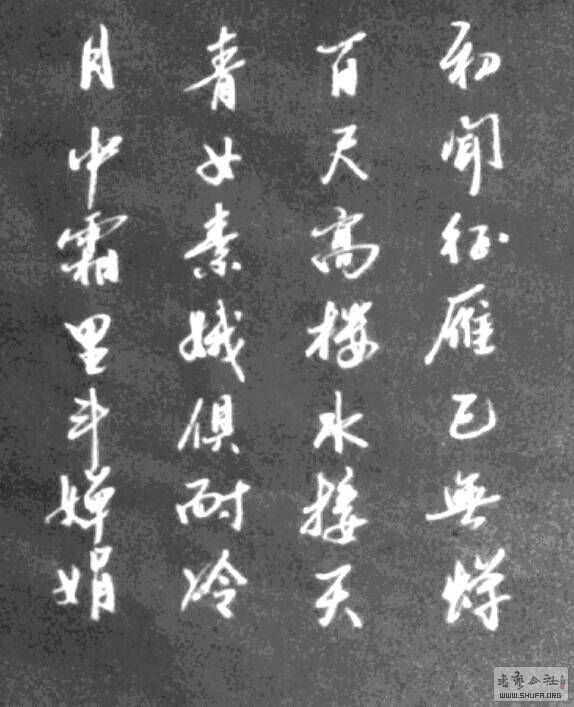 初闻征雁已無蝉
百尺高楼水接天
青女素娥俱耐冷
月中霜里斗婵娟
书艺公社
WWW.SHUFA.ORG